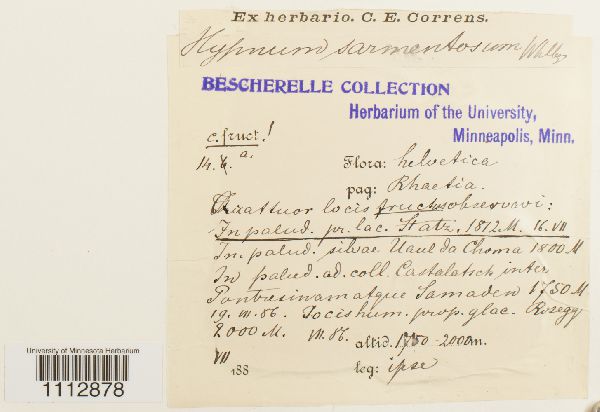 Ex herbario. C. E. Correns.
Hypnum sarmentosum Whlbg
BESCHERELLE COLLECTION
Herbarium of the University,
Minneapolis, Minn.
c. fruct!
14. a.
Flora: helvetica
pag: Rhaetia.
Quattuor locis fructus observavi:
In palud. pr. lac. Statz, 1812 M. 16. VII
In palud. silvae Uaul da Choma 1800 M
In palud. ad. coll. Castalatsch inter
Pontresinam atque Samaden 1750 M
19. VII. 86. locis hum. prop. glac. Rosegg
2000 M. VII. 86. altid. 1750-2000 m.
VII
188 leg: ipse
University of Minnesota Herbarium
1112878